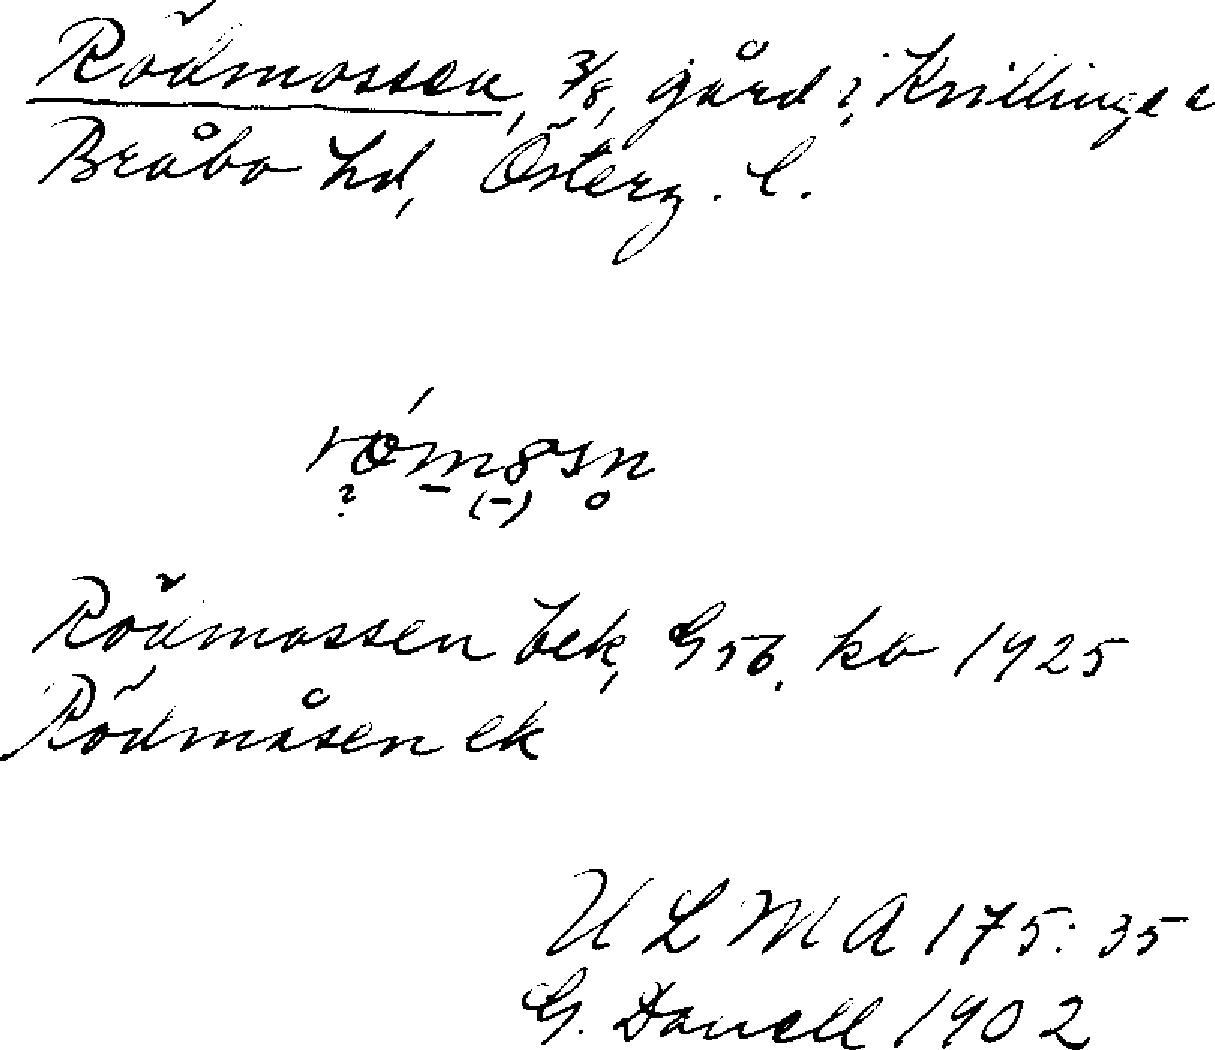 Rödmossen, 3/8, gård i Kvillinge
Bråbo hd, Österg. l.
Rödmossen bek, G 56, kb 1925
Rödmåsen ek
U L M A 175:35
G. Danell 1902